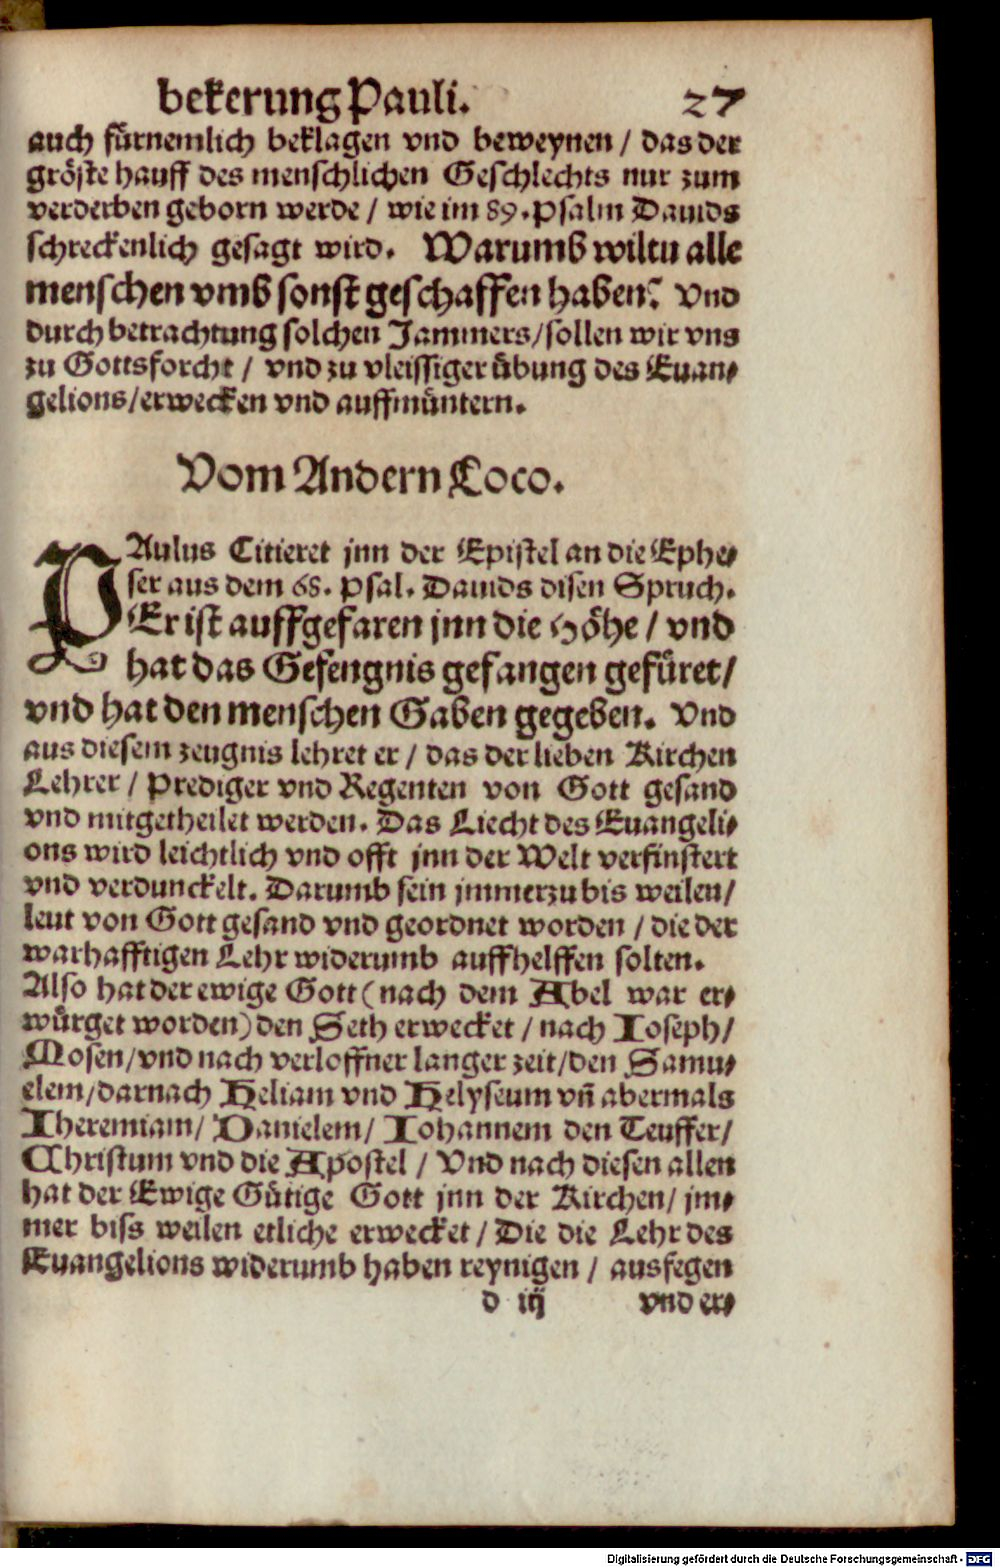 bekerung Pauli. 27
auch fürnemlich beklagen vnd beweynen / das der
gröste hauff des menschlichen Geschlechts nur zum
verderben geborn werde / wie im 89. Psalm Dauids
schreckenlich gesagt wird. Warumb wiltu alle
menschen vmb sonst geschaffen haben? Vnd
durch betrachtung solchen Jammers/sollen wir vns
zu Gottsforcht / vnd zu vleissiger übung des Euan⸗
gelions/erwecken vnd auffmüntern.
Vom Andern Loco.
PAulus Citieret jnn der Epistel an die Ephe⸗
ser aus dem 68. Psal. Dauids disen Spruch.
Er ist auffgefaren jnn die Höhe / vnd
hat das Gefengnis gefangen gefüret/
vnd hat den menschen Gaben gegeben. Vnd
aus diesem zeugnis lehret er / das der lieben Kirchen
Lehrer / Prediger vnd Regenten von Gott gesand
vnd mitgetheilet werden. Das Liecht des Euangeli⸗
ons wird leichtlich vnd offt jnn der Welt verfinstert
vnd verdunckelt. Darumb sein jmmerzu bis weilen/
leut von Gott gesand vnd geordnet worden / die der
warhafftigen Lehr widerumb auffhelffen solten.
Also hat der ewige Gott (nach dem Abel war er⸗
würget worden) den Seth erwecket / nach Ioseph/
Mosen/vnd nach verloffner langer zeit/den Samu⸗
elem/darnach Heliam vnd Helyseum vñ abermals
Iheremiam/ Danielem/ Iohannem den Teuffer/
Christum vnd die Apostel / Vnd nach diesen allen
hat der Ewige Gütige Gott jnn der Kirchen/ jm⸗
mer biss weilen etliche erwecket / Die die Lehr des
Euangelions widerumb haben reynigen / ausfegen
d iij vnd er⸗
Digitalisierung gefördert durch die Deutsche Forschungsgemeinschaft - DFG